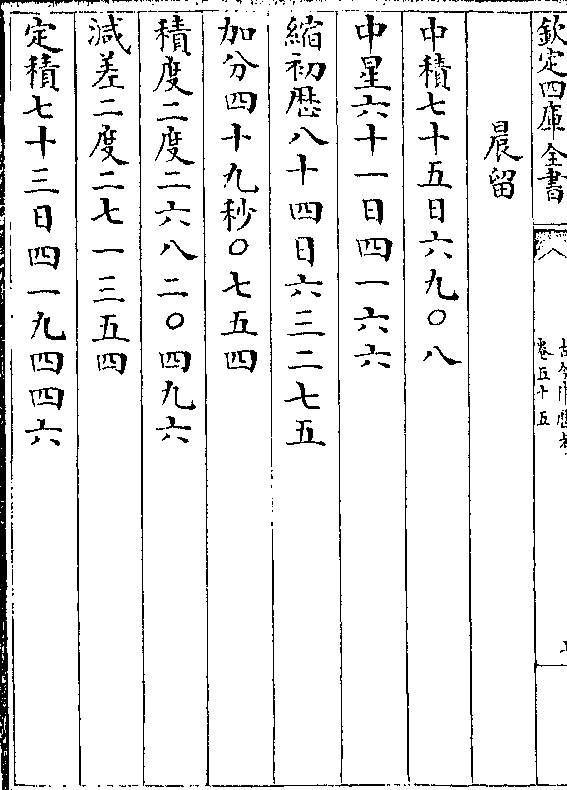 欽定四庫全書
卷五十五
晨留
中積七十五日六九〇八
中星六十一日四一六六
縮初厯八十四日六三二七五
加分四十九秒〇七五四
積度二度二六八二〇四九六
減差二度二七一三五四
定積七十三日四一九四四六